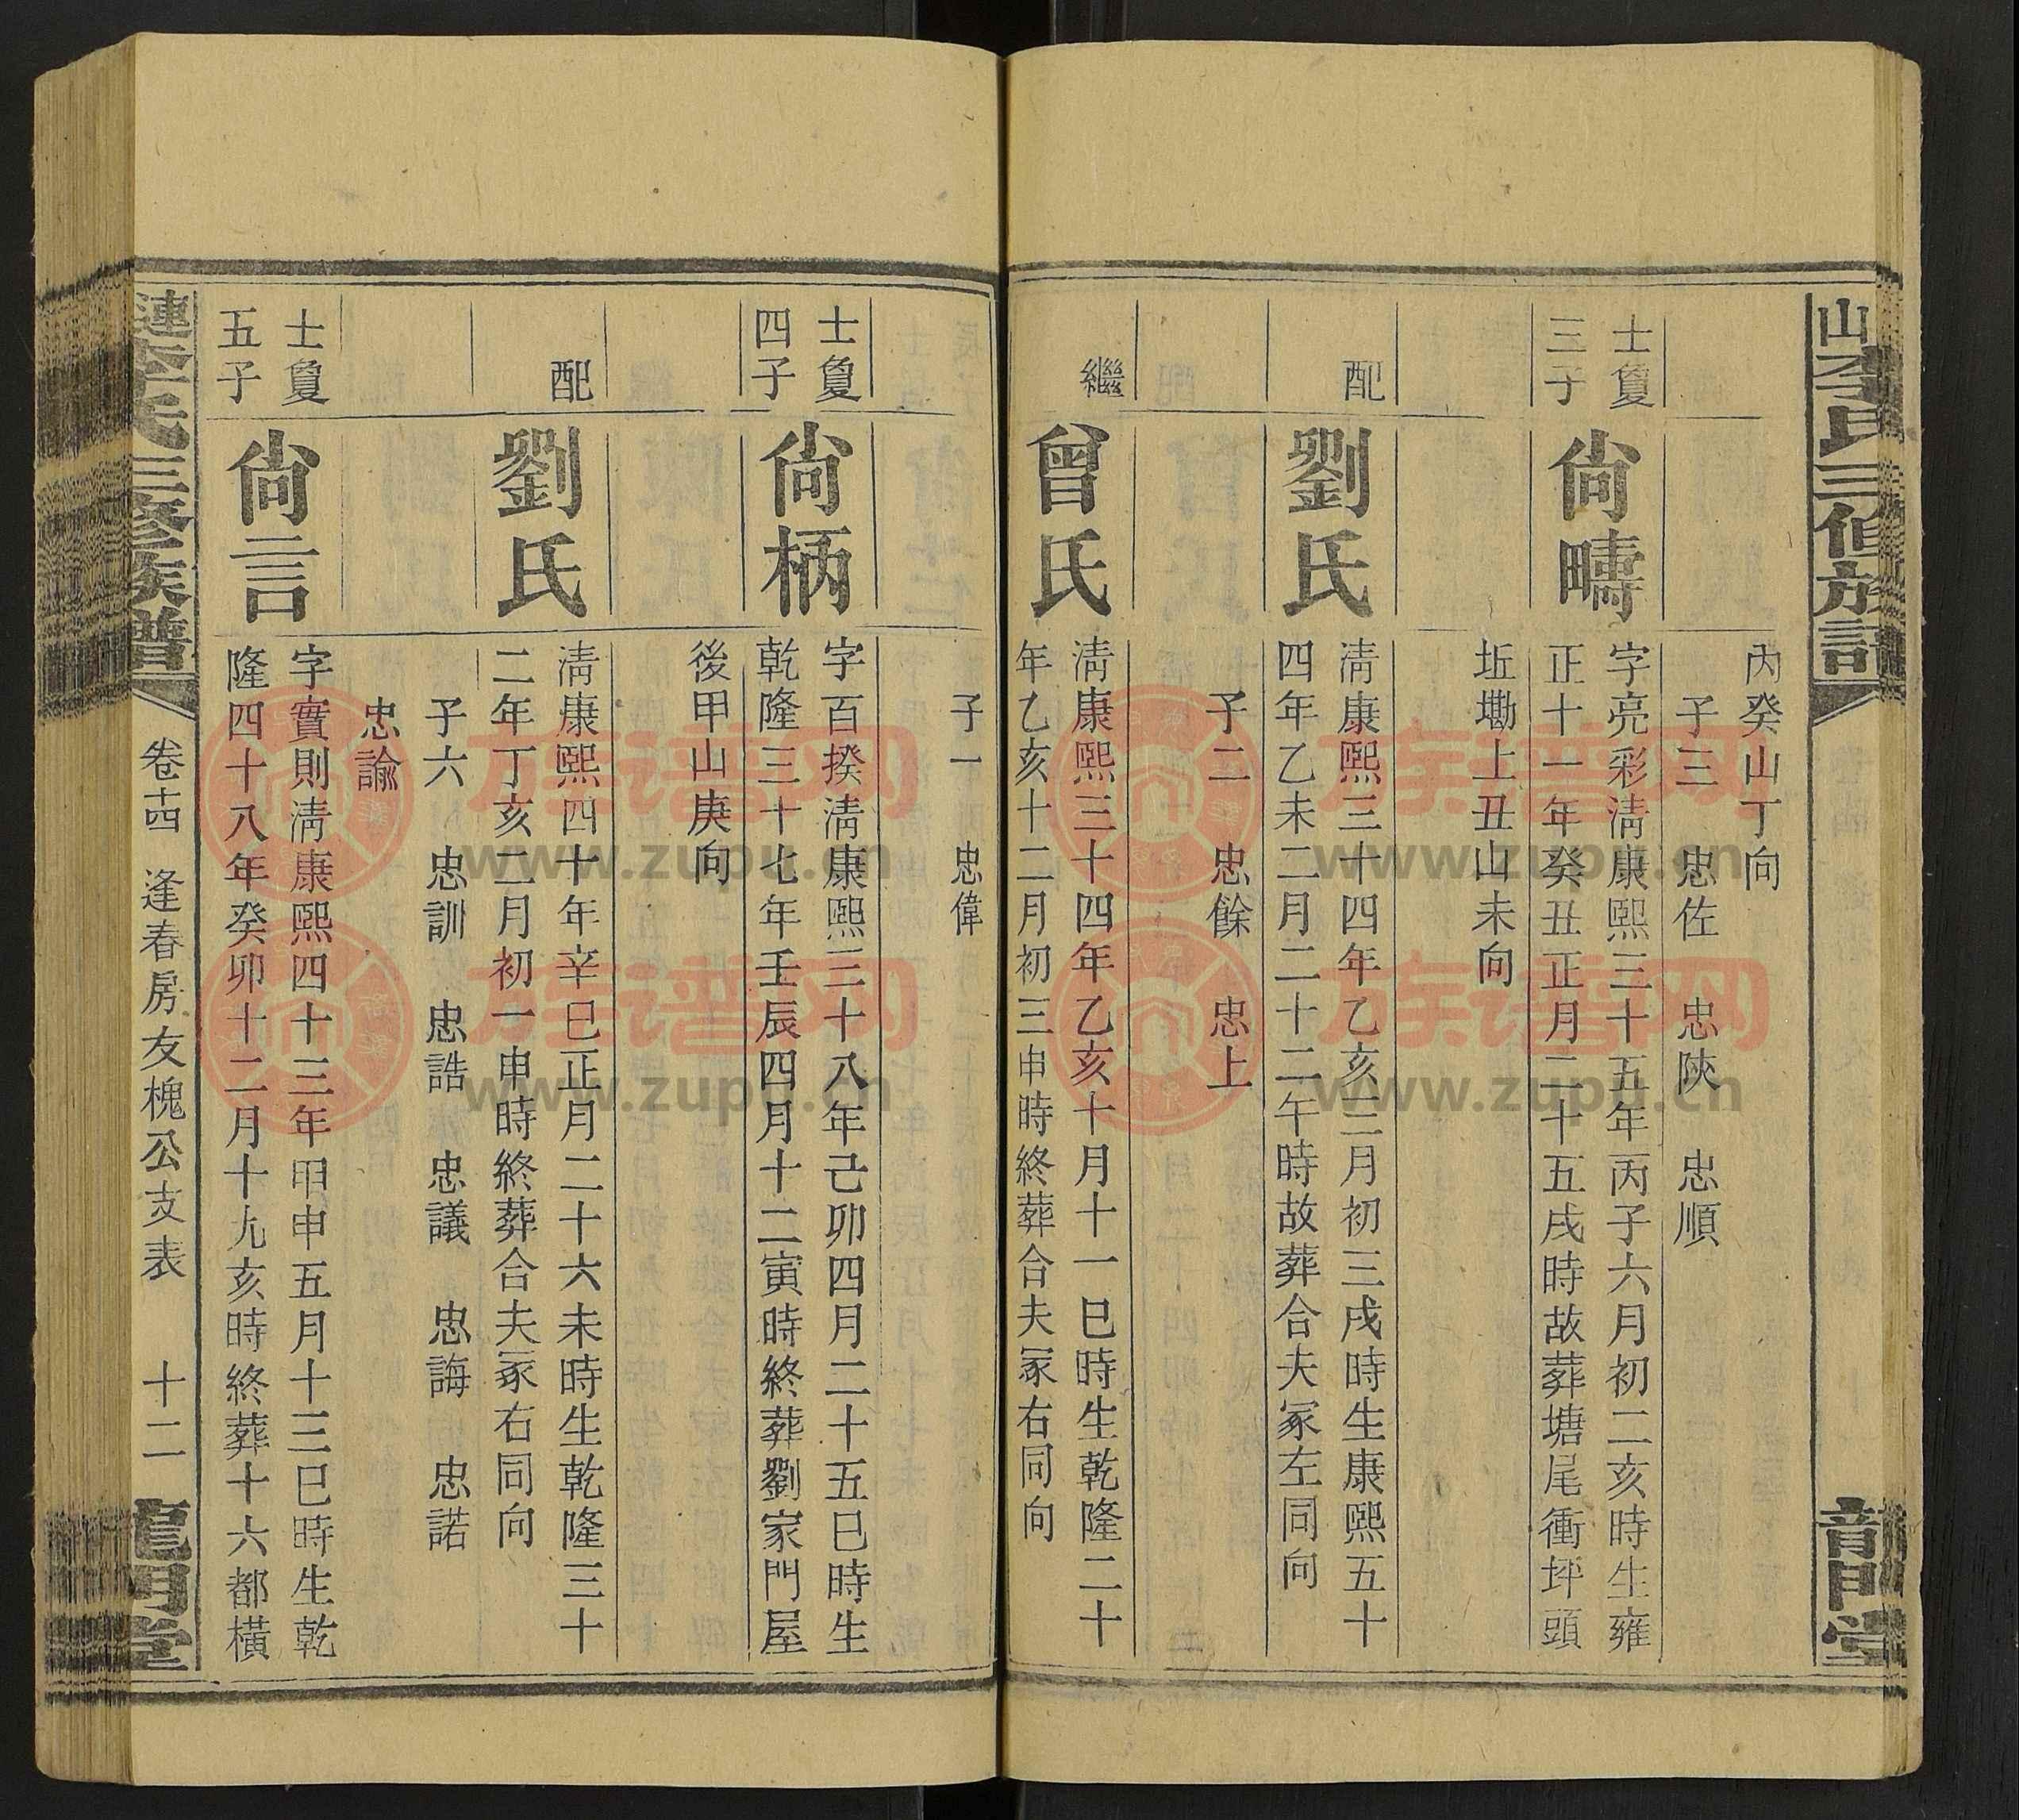 山李氏三修族譜
龍門堂
丙癸山丁向
子三 忠佐 忠陝 忠順
士敻三子
尙疇
字亮彩淸康熙三十五年丙子六月初二亥時生雍
正十一年癸丑正月二十五戌時故葬塘尾衝坪頭
坵墈上丑山未向
配
劉氏
淸康熙三十四年乙亥三月初三戌時生康熙五十
四年乙未二月二十二午時故葬合夫冢左同向
子二 忠餘 忠上
繼
曾氏
淸康熙三十四年乙亥十月十一巳時生乾隆二十
年乙亥十二月初三申時終葬合夫冢右同向
子一 忠偉
士敻四子
尙柄
字百揆淸康熙三十八年己卯四月二十五巳時生
乾隆三十七年壬辰四月十二寅時終葬劉家門屋
後甲山庚向
配
劉氏
淸康熙四十年辛巳正月二十六未時生乾隆三十
二年丁亥二月初一申時終葬合夫冢右同向
子六 忠訓 忠誥 忠議 忠誨 忠諾
忠諭
士敻五子
尙言
字實則淸康熙四十三年甲申五月十三巳時生乾
隆四十八年癸卯十二月十九亥時終葬十六都橫
漣李氏三修族譜
卷十四 逢春房友槐公支表 十二
龍門堂
族谱网
www.zupu.cn
族谱网
www.zupu.cn
族谱网
www.zupu.cn
族谱网
www.zupu.cn